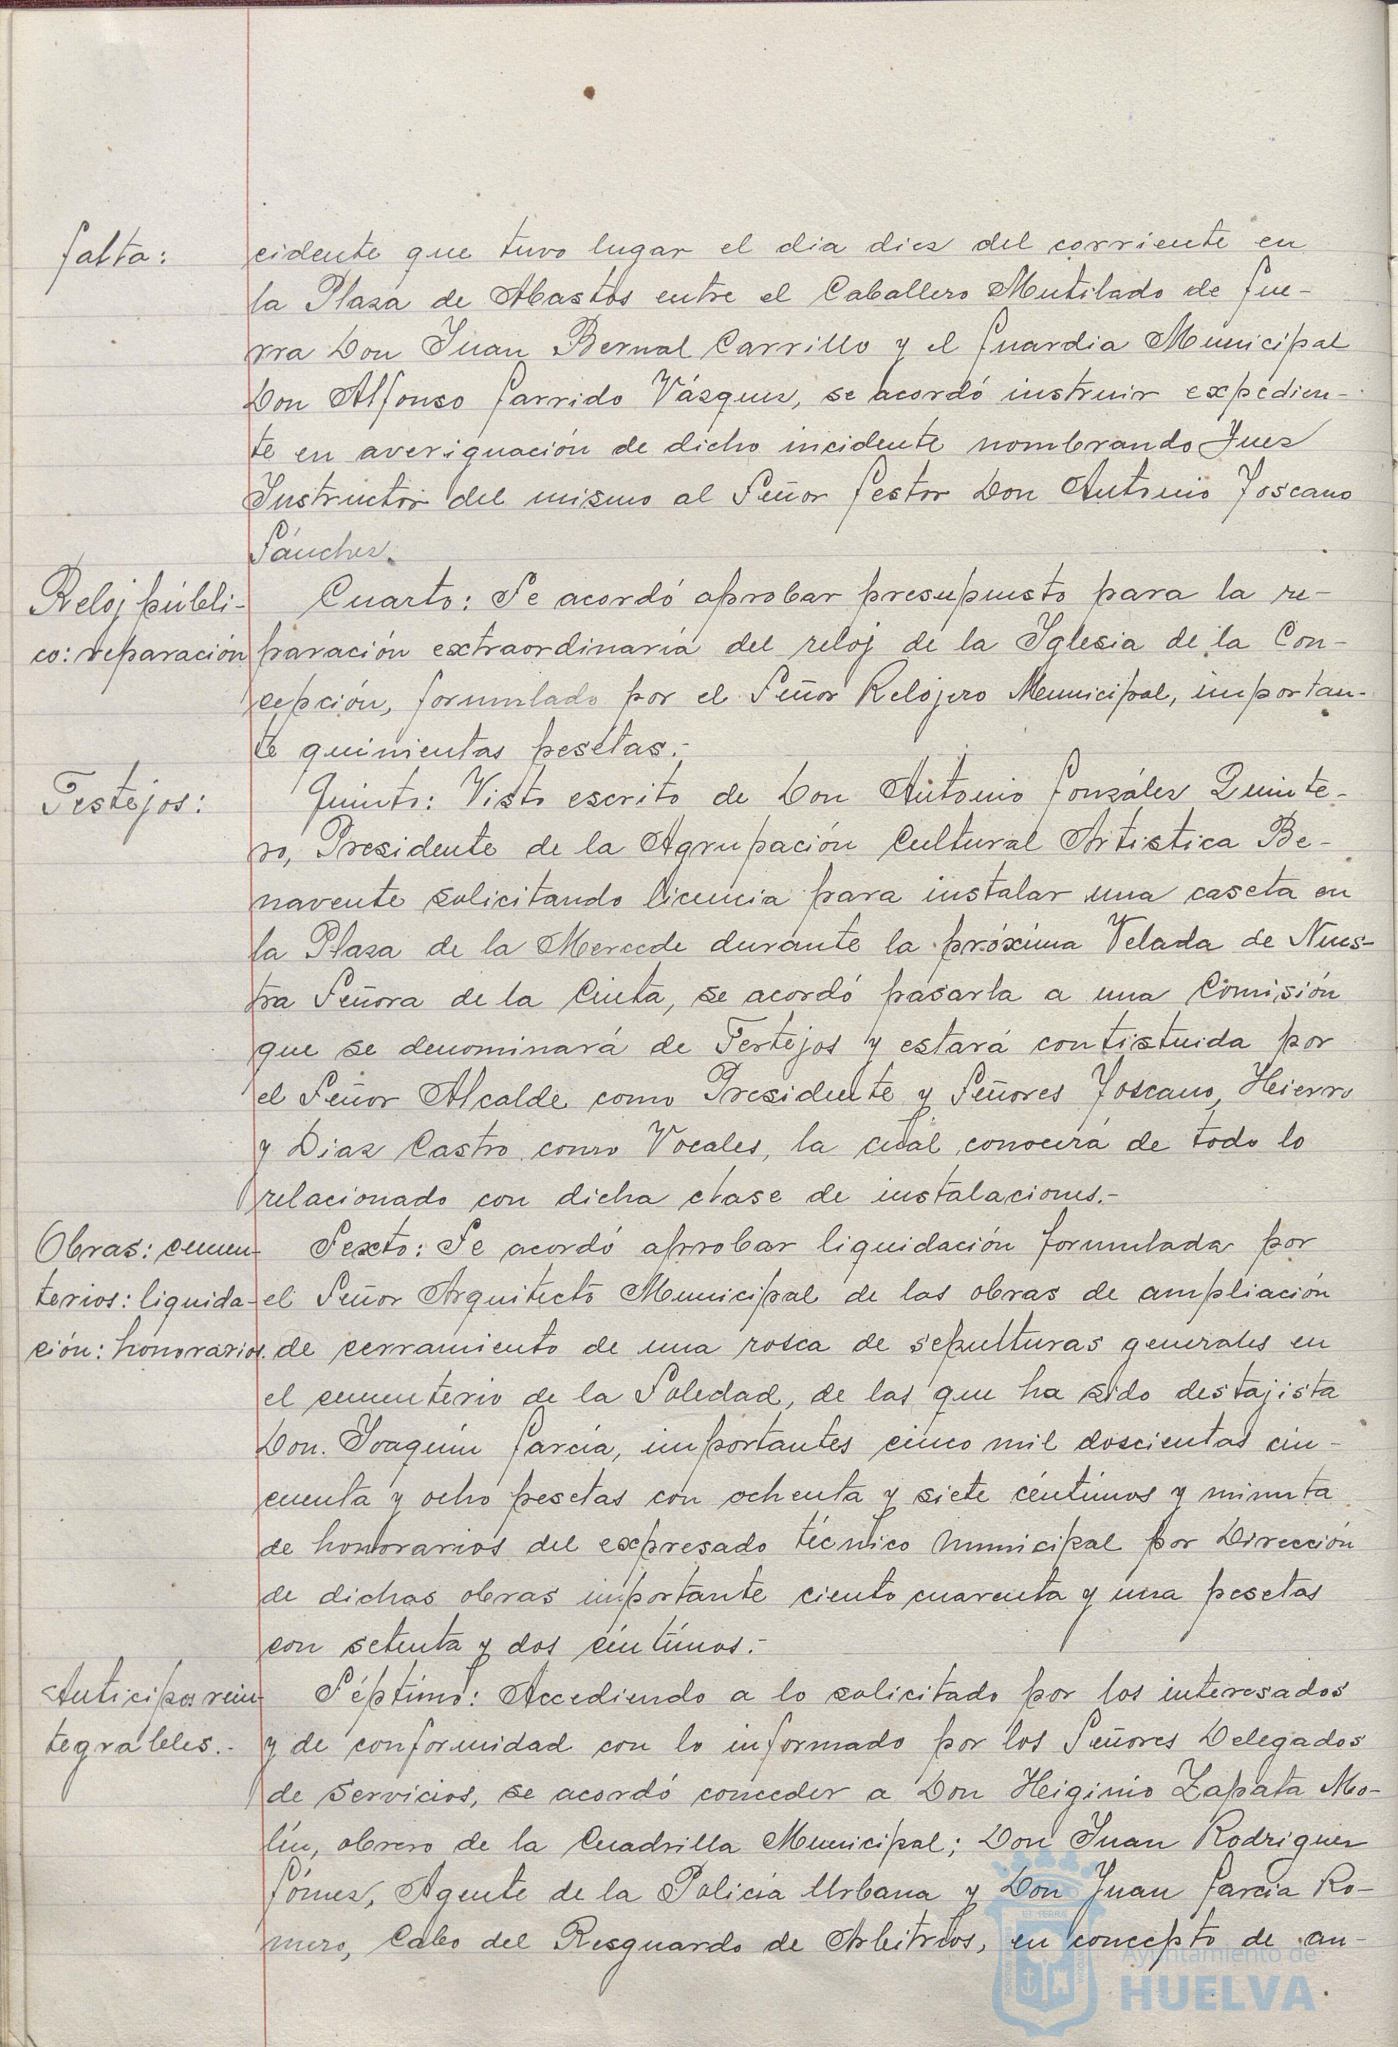 falta:
cidente que tuvo lugar el dia diez del corriente en
la Plaza de Abastos entre el Caballero Mutilado de Gue-
rra Don Juan Bernal Carrillo y el Guardia Municipal
Don Alfonso Garrido Vázquez, se acordó instruir expedien-
te en averiguación de dicho incidente nombrando Juez
Instructor del mismo al Señor Gestor Don Antonio Toscano
Sánchez.
Reloj públi-
co: reparación
Cuarto: Se acordó aprobar presupuesto para la re-
paración extraordinaria del reloj de la Iglesia de la Con-
cepción, formulado por el Señor Relojero Municipal, importan-
te quinientas pesetas.-
Festejos:
Quinto: Visto escrito de Don Antonio González Quinte-
ro, Presidente de la Agrupación Cultural Artistica Be-
navente solicitando licencia para instalar una caseta en
la Plaza de la Mercede durante la próxima Velada de Nues-
tra Señora de la Cinta, se acordó pasarla a una Comisión
que se denominará de Fertejos y estará contistuida por
el Señor Alcalde como Presidente y Señores Toscano, Hierro
y Diaz Castro como Vocales, la cual conocerá de todo lo
relacionado con dicha clase de instalaciones.-
Obras: cemen-
terios: liquida-
ción: honorarios.
Sexto: Se acordó aprobar liquidación formulada por
el Señor Arquitecto Municipal de las obras de ampliación
de cerramiento de una rosca de sepulturas generales en
el cementerio de la Soledad, de las que ha sido destajista
Don. Joaquín García, importantes cinco mil doscientas cin-
cuenta y ocho pesetas con ochenta y siete céntimos y minuta
de honorarios del expresado técnico municipal por Dirección
de dichas obras importante ciento cuarenta y una pesetas
con setenta y dos céntimos.-
Anticipos rein-
tegrables.-
Séptimo: Accediendo a lo solicitado por los interesados
y de conformidad con lo informado por los Señores Delegados
de Servicios, se acordó conceder a Don Heiginio Zapata Mo-
lín, obrero de la Cuadrilla Municipal; Don Juan Rodriguez
Gómez, Agente de la Policia Urbana y Don Juan Garcia Ro-
mero, Cabo del Resguardo de Arbitrios, en concepto de an-
Ayuntamiento de
HUELVA